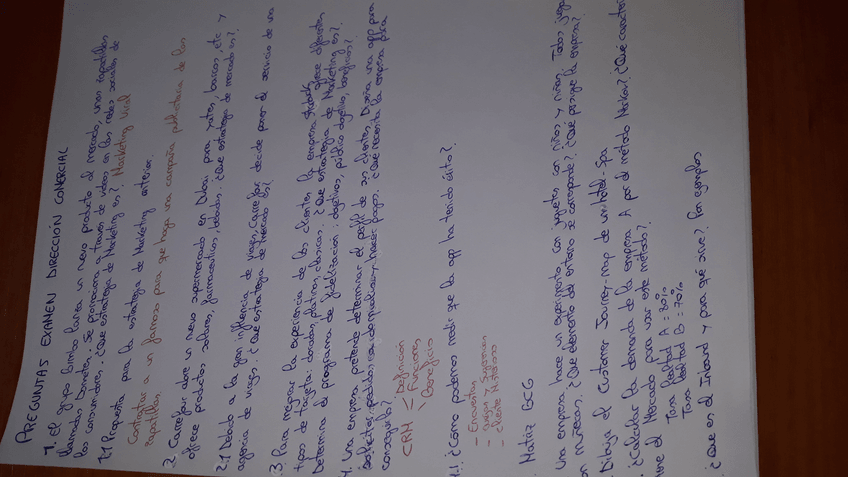 PREGUNTAS EXAMEN DIRECCIÓN COMERCIAL
1. El grupo Bimbo lanza un nuevo producto al mercado, unas zapatillas
llamadas Donettes. Se promociona a través de videos en las redes sociales de
los consumidores. ¿Que estrategia de Marketing es? Marketing Viral
1.1 Propuesta para la estrategia de Marketing anterior.
Contratar a un famoso para que haga una campaña publicitaria de las
zapatillas
2. Carrefour abre un nuevo supermercado en Dubai para yates, barcos, etc y
ofrece productos solares, farmaceuticos, helados. ¿Que estrategia de mercado es?
2.1 Debido a la gran influencia de viajes, Carrefour decide poner el servicio de una
agencia de viajes. ¿Que estrategia de mercado es?
3 Para mejorar la experiencia de los clientes la empresa ofrece diferentes
tipos de tarjeta: dorados, platino, clasicas. ¿Que estrategia de Marketing es?
Determina el programa de fidelización: objetivos, público objetivo, beneficios?
4. Una empresa pretende determinar el perfil de sus clientes. Diseña una app para
solicitar pedidos, y hacer pagos. ¿Qué necesita la empresa para
conseguirlo?
CRM = Definición
Funciones
Beneficio
4.1 ¿Cómo podemos medir que la app ha tenido éxito?
- Encuestas
- Quejas y Sugerencias
- cliente misterioso
Matriz BCG
Una empresa hace un experimento con juguetes con niños y niñas. Todos juegan
con muñecas. ¿Que elemento del entorno se corresponde? ¿Qué persigue la empresa?
Dibuja el Customer Journey-map de un hotel-Spa
¿Calcular la demanda de la empresa A por el método Markov? ¿Qué
el Mercado para usar este método?
Tasa lealtad A = 80%
Tasa lealtad B = 70%
¿Que es el Inbound y para qué sirve? Pon ejemplos